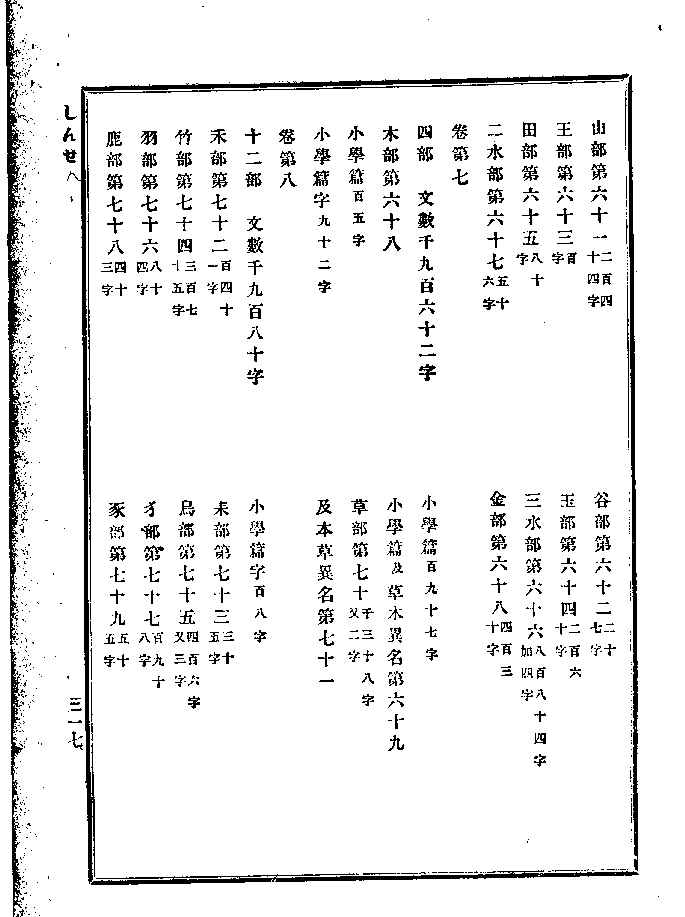 山部第六十一二百四十四字
谷部第六十二二十七字
王部第六十三百字
玉部第六十四二百六十字
田部第六十五八十字
三水部第六十六八百八十四字加四字
二水部第六十七五十六字
金部第六十八四百三十字
卷第七
四部　文數千九百六十二字
小學篇百九十七字
木部第六十八
小學篇及草木異名第六十九
小學篇百五字
草部第七十千三十八字又二字
小學篇字九十二字
及本草異名第七十一
卷第八
十二部　文數千九百八十字
小學篇字百八字
禾部第七十二百四十一字
耒部第七十三三十五字
竹部第七十四三百七十五字
鳥部第七十五四百六字又三字
羽部第七十六八十四字
犭部第七十七百九十八字
鹿部第七十八四十三字
豕部第七十九五十五字
しんせ
三一七